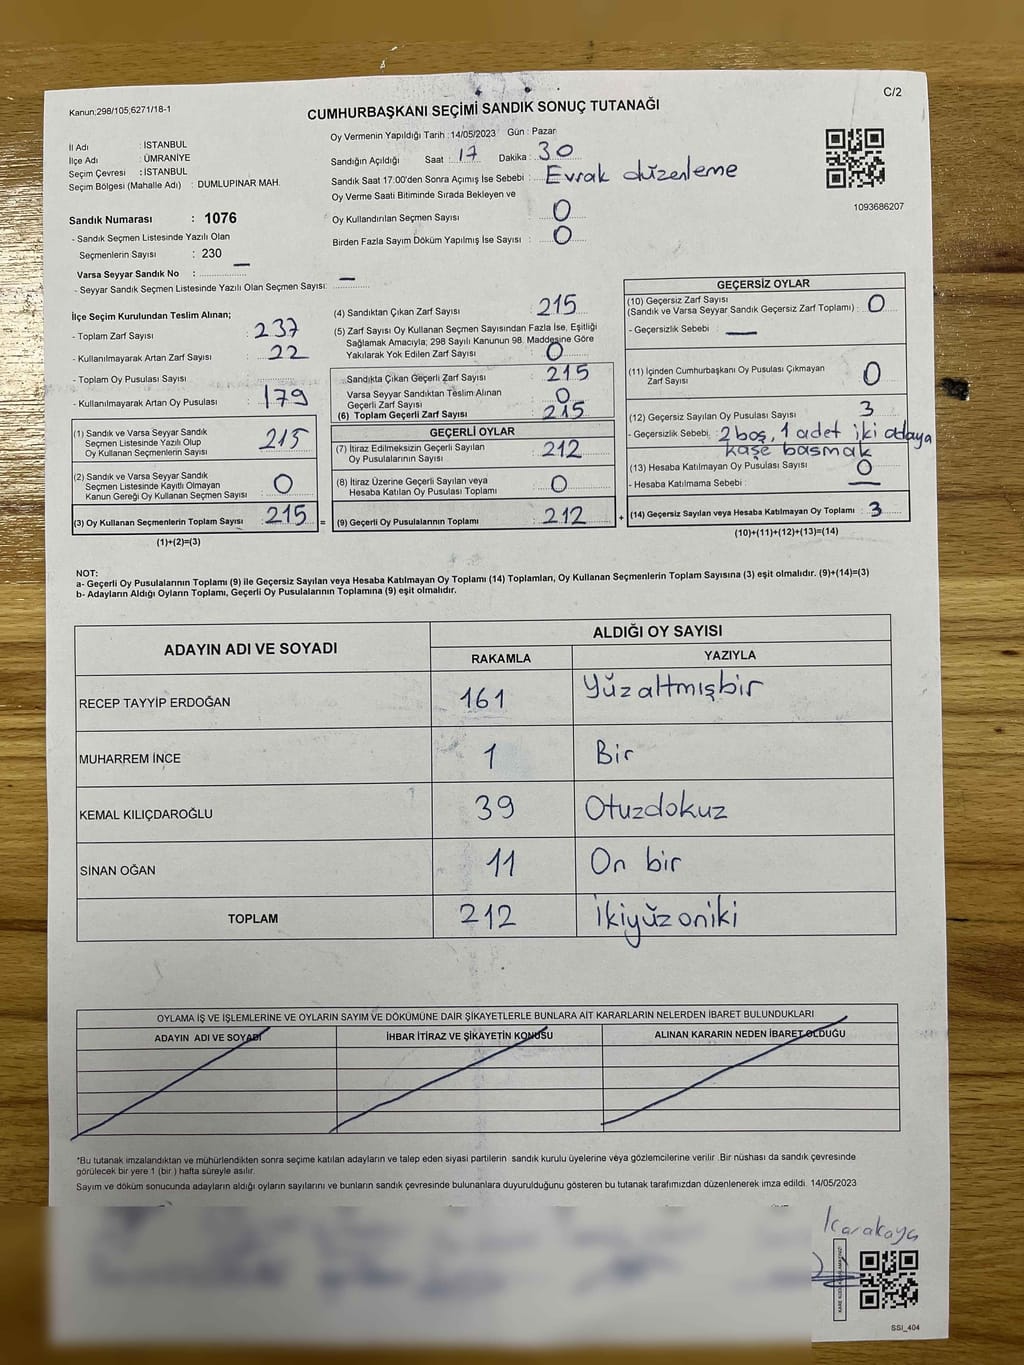 Kanun;298/105;6271/18-1
C/2
CUMHURBAŞKANI SEÇİMİ SANDIK SONUÇ TUTANAĞI
İl Adı : İSTANBUL
İlçe Adı : ÜMRANİYE
Seçim Çevresi : İSTANBUL
Seçim Bölgesi (Mahalle Adı) : DUMLUPINAR MAH.
Oy Vermenin Yapıldığı Tarih : 14/05/2023 Gün : Pazar
Sandığın Açıldığı Saat : 17 Dakika : 30
Sandık Saat 17.00'den Sonra Açımış İse Sebebi : Evrak düzenleme
Oy Verme Saati Bitiminde Sırada Bekleyen ve
Oy Kullandırılan Seçmen Sayısı : 0
Birden Fazla Sayım Döküm Yapılmış İse Sayısı : 0
1093686207
Sandık Numarası : 1076
- Sandık Seçmen Listesinde Yazılı Olan
Seçmenlerin Sayısı : 230
Varsa Seyyar Sandık No : —
- Seyyar Sandık Seçmen Listesinde Yazılı Olan Seçmen Sayısı: —
İlçe Seçim Kurulundan Teslim Alınan;
- Toplam Zarf Sayısı : 237
- Kullanılmayarak Artan Zarf Sayısı : 22
- Toplam Oy Pusulası Sayısı :
- Kullanılmayarak Artan Oy Pusulası : 179
(1) Sandık ve Varsa Seyyar Sandık
Seçmen Listesinde Yazılı Olup
Oy Kullanan Seçmenlerin Sayısı : 215
(2) Sandık ve Varsa Seyyar Sandık
Seçmen Listesinde Kayıtlı Olmayan
Kanun Gereği Oy Kullanan Seçmen Sayısı : 0
(3) Oy Kullanan Seçmenlerin Toplam Sayısı : 215 =
(1)+(2)=(3)
(4) Sandıktan Çıkan Zarf Sayısı : 215
(5) Zarf Sayısı Oy Kullanan Seçmen Sayısından Fazla İse, Eşitliği
Sağlamak Amacıyla; 298 Sayılı Kanunun 98. Maddesine Göre
Yakılarak Yok Edilen Zarf Sayısı : 0
Sandıkta Çıkan Geçerli Zarf Sayısı : 215
Varsa Seyyar Sandıktan Teslim Alınan
Geçerli Zarf Sayısı : 0
(6) Toplam Geçerli Zarf Sayısı : 215
GEÇERLİ OYLAR
(7) İtiraz Edilmeksizin Geçerli Sayılan
Oy Pusulalarının Sayısı : 212
(8) İtiraz Üzerine Geçerli Sayılan veya
Hesaba Katılan Oy Pusulası Toplamı : 0
(9) Geçerli Oy Pusulalarının Toplamı : 212 +
GEÇERSİZ OYLAR
(10) Geçersiz Zarf Sayısı
(Sandık ve Varsa Seyyar Sandık Geçersiz Zarf Toplamı) : 0
- Geçersizlik Sebebi : —
(11) İçinden Cumhurbaşkanı Oy Pusulası Çıkmayan
Zarf Sayısı : 0
(12) Geçersiz Sayılan Oy Pusulası Sayısı : 3
- Geçersizlik Sebebi : 2 boş, 1 adet iki adaya
kaşe basmak
(13) Hesaba Katılmayan Oy Pusulası Sayısı : 0
- Hesaba Katılmama Sebebi : —
(14) Geçersiz Sayılan veya Hesaba Katılmayan Oy Toplamı : 3
(10)+(11)+(12)+(13)=(14)
NOT:
a- Geçerli Oy Pusulalarının Toplamı (9) ile Geçersiz Sayılan veya Hesaba Katılmayan Oy Toplamı (14) Toplamları, Oy Kullanan Seçmenlerin Toplam Sayısına (3) eşit olmalıdır. (9)+(14)=(3)
b- Adayların Aldığı Oyların Toplamı, Geçerli Oy Pusulalarının Toplamına (9) eşit olmalıdır.
ADAYIN ADI VE SOYADI
ALDIĞI OY SAYISI
RAKAMLA YAZIYLA
RECEP TAYYİP ERDOĞAN 161 Yüzaltmışbir
MUHARREM İNCE 1 Bir
KEMAL KILIÇDAROĞLU 39 Otuzdokuz
SİNAN OĞAN 11 On bir
TOPLAM 212 İkiyüzoniki
OYLAMA İŞ VE İŞLEMLERİNE VE OYLARIN SAYIM VE DÖKÜMÜNE DAİR ŞİKAYETLERLE BUNLARA AİT KARARLARIN NELERDEN İBARET BULUNDUKLARI
ADAYIN ADI VE SOYADI İHBAR İTİRAZ VE ŞİKAYETİN KONUSU ALINAN KARARIN NEDEN İBARET OLDUĞU
*Bu tutanak imzalandıktan ve mühürlendikten sonra seçime katılan adayların ve talep eden siyasi partilerin sandık kurulu üyelerine veya gözlemcilerine verilir .Bir nüshası da sandık çevresinde
görülecek bir yere 1 (bir ) hafta süreyle asılır.
Sayım ve döküm sonucunda adayların aldığı oyların sayılarını ve bunların sandık çevresinde bulunanlara duyurulduğunu gösteren bu tutanak tarafımızdan düzenlenerek imza edildi. 14/05/2023
Karakaya
SSI_404